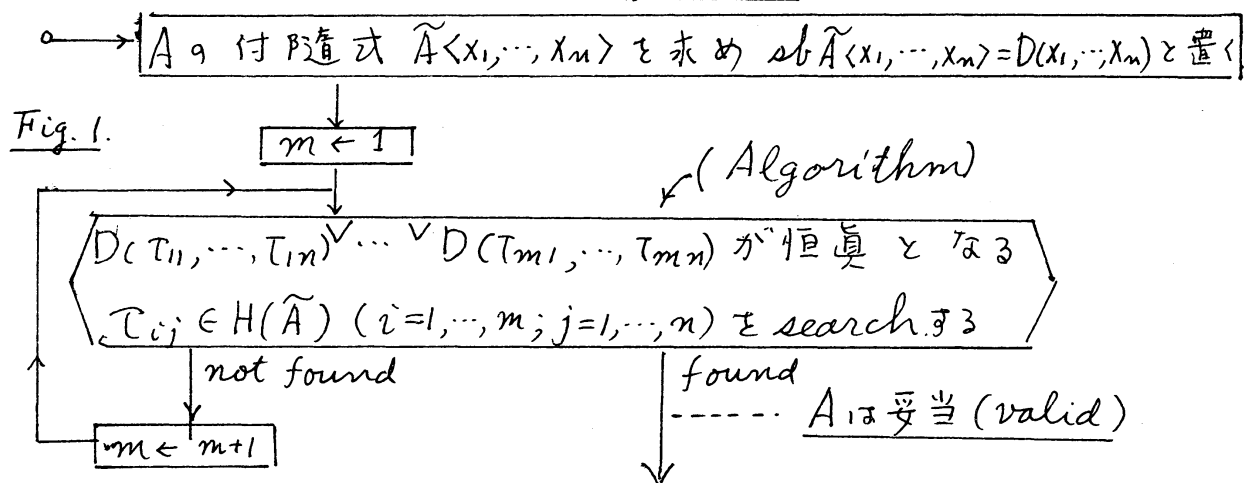 Aの付随式 Ã<x1,…,xn> を求め sb Ã<x1,…,xn>=D(x1,…,xn)と置く
Fig. 1.
m ← 1
(Algorithm)
D(τ11,…,τ1n)∨…∨D(τm1,…,τmn)が恒眞となる
τij∈H(Ã) (i=1,…,m; j=1,…,n)をsearchする
not found
found
Aは妥当(valid)
m ← m+1